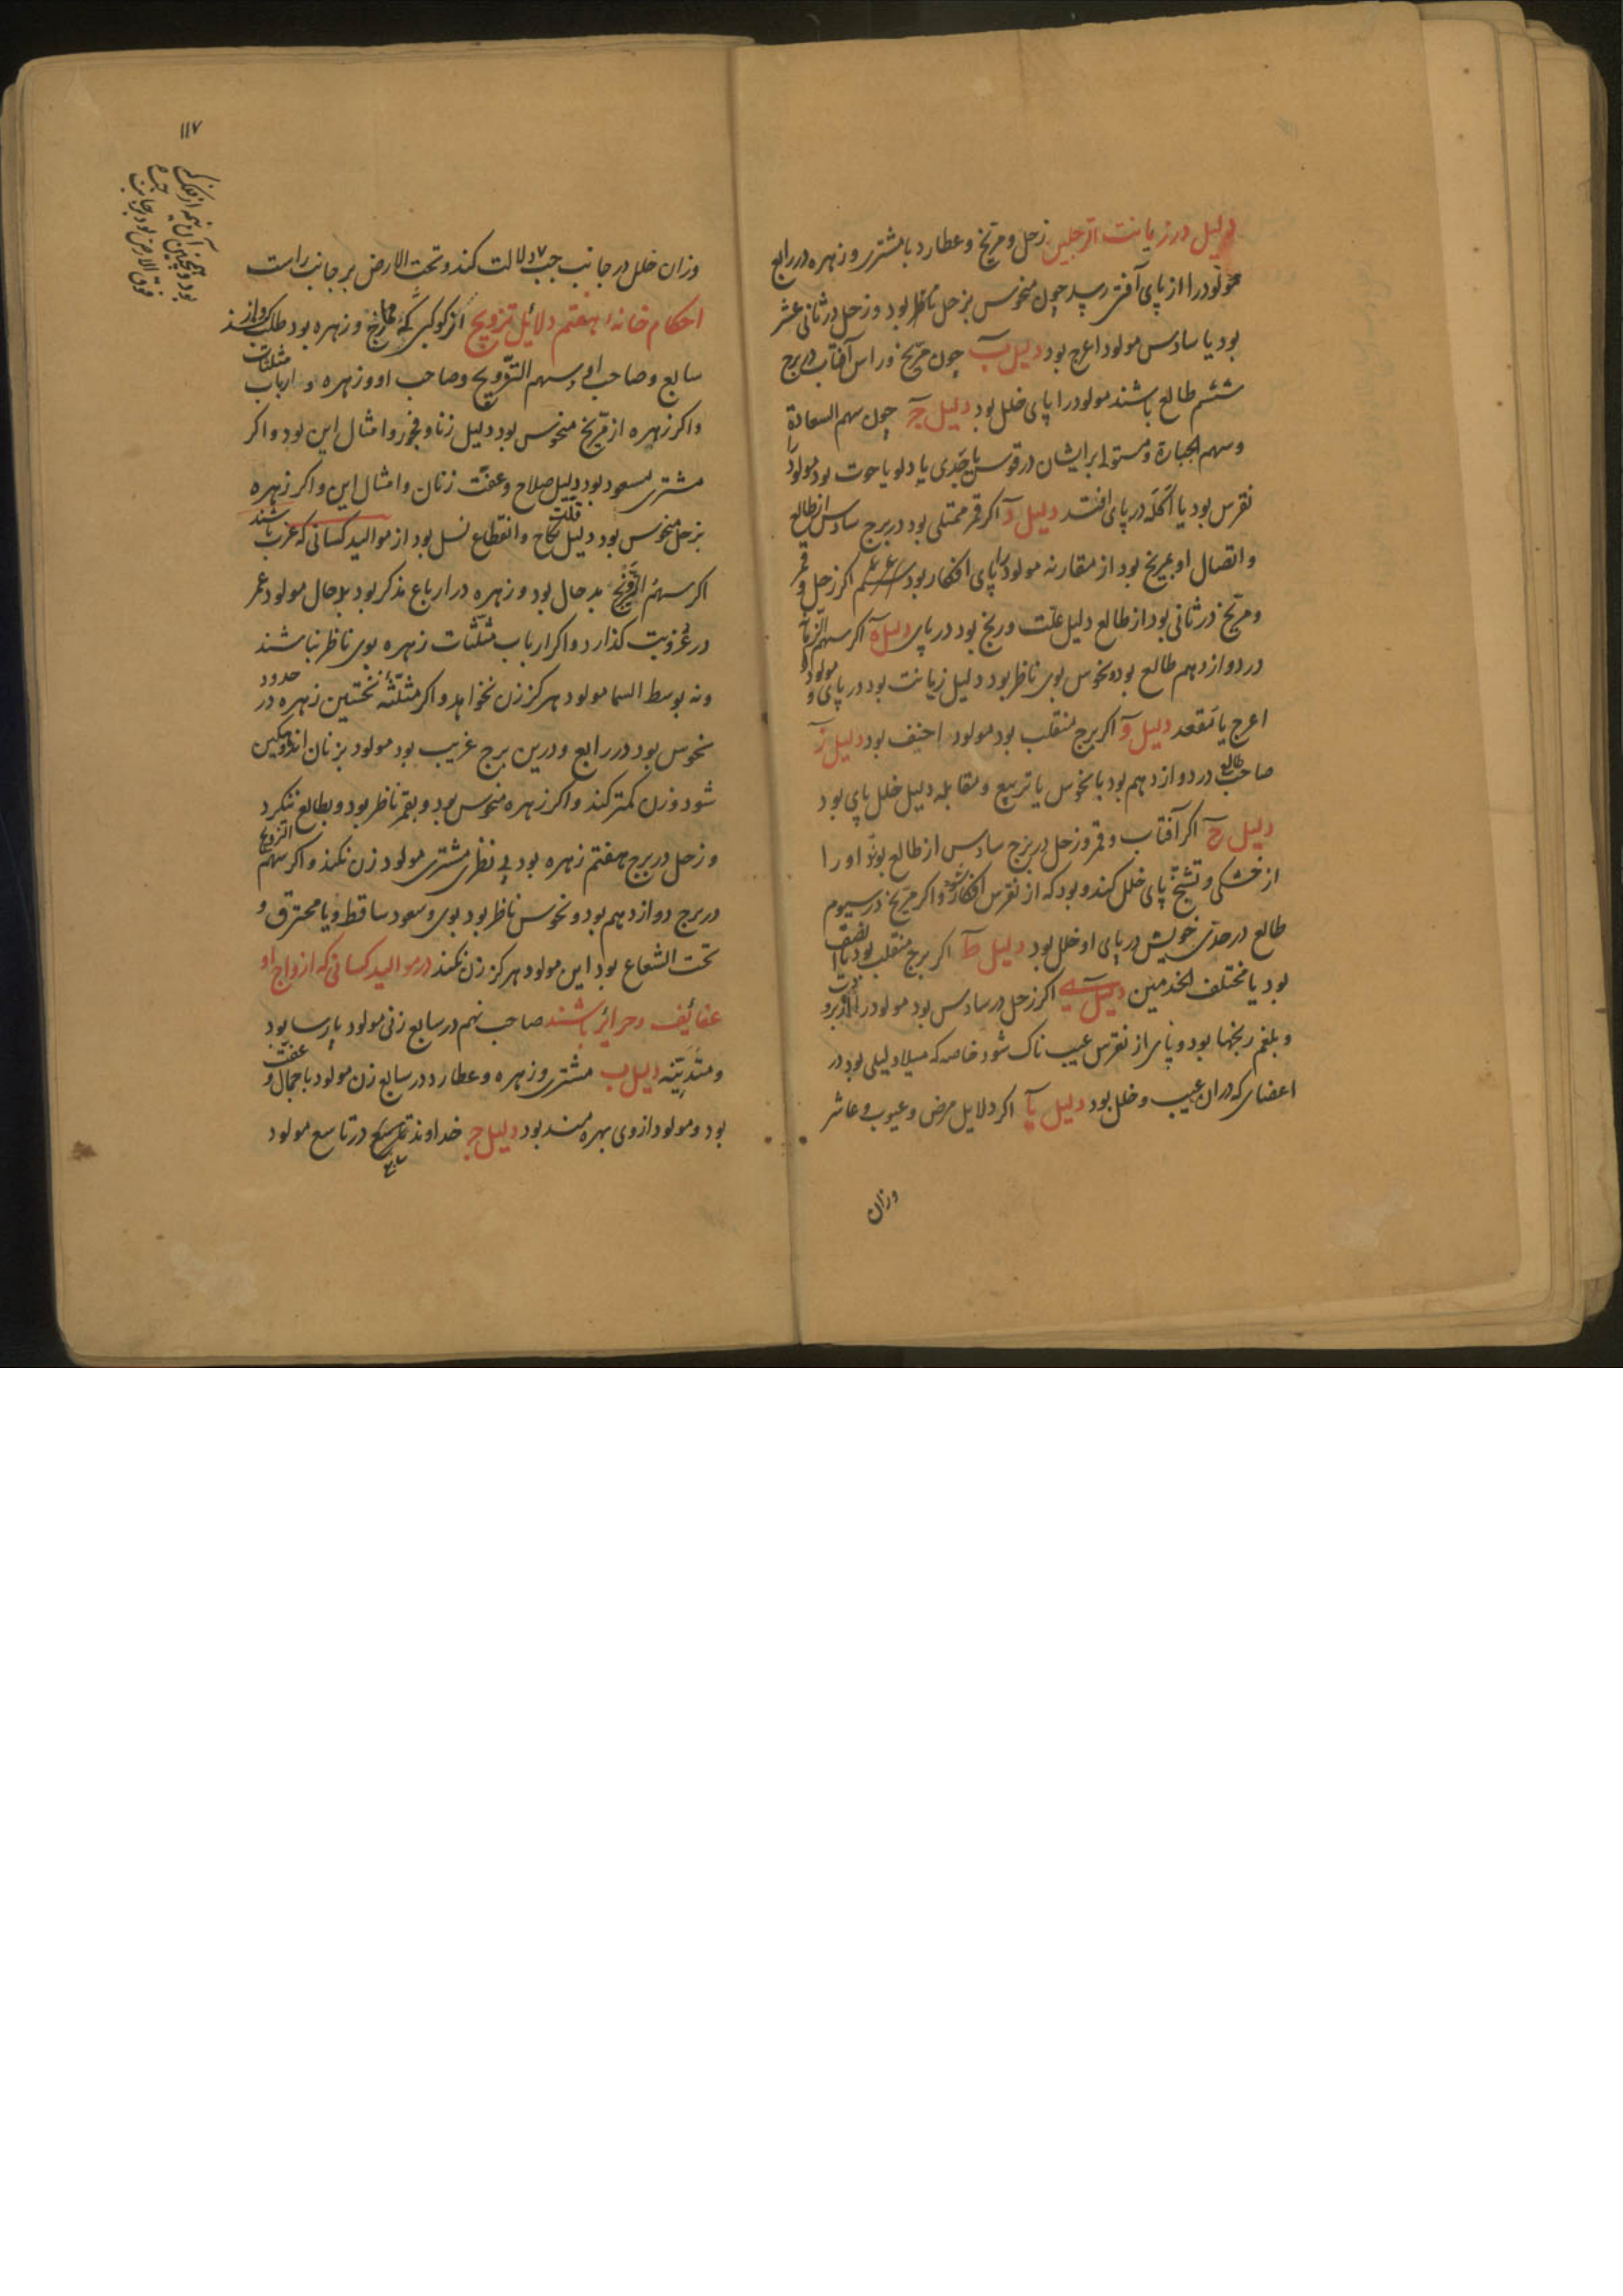 دلیل در زیانت الرجلین زحل و مریخ و عطارد با مشتری و زهره در رابع
مولود را از پای آفتی رسد چون منحوس بزحل ناظر بود و زحل در ثانی عشر
بود یا سادس مولود اعرج بود دلیل ب چون مریخ و راس آفتاب در برج
ششم طالع باشند مولود را پای خلل بود دلیل ج چون سهم السعادة
و سهم و مستولی بر ایشان در قوس یا جدی یا دلو یا حوت بود مولود را
نقرس بود یا اکله در پای افتد دلیل د اکر قمر ممتلی بود در برج سادس از طالع
و اتصال او بمریخ بود از مقارنه مولود را پای افکار بود اکر زحل و قمر
و مریخ در ثانی بود از طالع دلیل علت و رنج بود در پای دلیل ه اکر سهم الزمانة
در دوازدهم طالع بود و نحوس بوی ناظر بود دلیل زیانت بود در پای و مولود
اعرج یا مقعد دلیل و اکر برج منقلب بود مولود احنف بود دلیل ز
صاحب طالع در دوازدهم بود با نحوس یا تربیع و مقابله دلیل خلل پای بود
دلیل ح اکر آفتاب و قمر و زحل در برج سادس از طالع بوند او را
از خشکی و تشنج پای خلل کند و بود که از نقرس افکار شود و اکر مریخ در سیوم
طالع در حدی خویش در پای او خلل بود دلیل ط اکر برج منقلب بود
بود یا مختلف دلیل ی اکر زحل در سادس بود مولود را از
و بلغم رنجها بود و پای از نقرس عیب ناک شود خاصه که میلاد لیلی بود در
اعضای که در ان عیب و خلل بود دلیل یا اکر دلایل مرض و عیوب و عاشر
وزان
۱۱۷
وزان خلل در جانب چپ دلالت کند و تحت الارض بر جانب راست
احکام خانهٔ هفتم دلایل تزویج از کوکبی که و زهره بود طلب کنند و از
سابع و صاحب او و سهم التزویج و صاحب او و زهره و ارباب مثلثات
و اکر زهره از مریخ منحوس بود دلیل زنا و فجور و امثال این بود و اکر
مشتری مسعود بود دلیل صلاح و عفت زنان و امثال این و اکر زهره
بزحل منحوس بود دلیل قلت نکاح و انقطاع نسل بود از موالید کسانی که عزب باشند
اکر سهم التزویج بد حال بود و زهره در ارباع مذکر بود بد حال مولود عمر
در عزوبت کذارد و اکر ارباب مثلثات زهره بوی ناظر نباشند
و نه بوسط السما مولود هرکز زن نخواهد و اکر مثلثهٔ نخستین زهره در حدود
نحوس بود در رابع و درین برج غریب بود مولود بزنان اندوهکین
شود و زن کمتر کند و اکر زهره منحوس بود و بقمر ناظر بود و بطالع ننکرد
و زحل در برج هفتم زهره بود بی نظر مشتری مولود زن نکند و اکر سهم التزویج
در برج دوازدهم بود و نحوس ناظر بود بوی و سعود ساقط و یا محترق و
تحت الشعاع بود این مولود هرکز زن نکند در موالید کسانی که ازواج او
عفائف و حرائر باشند صاحب نهم در سابع زنی مولود پارسا بود
و متدینه دلیل ب مشتری و زهره و عطارد در سابع زن مولود با جمال و عفت
بود و مولود از وی بهره مند بود دلیل ج خداوند در تاسع مولود